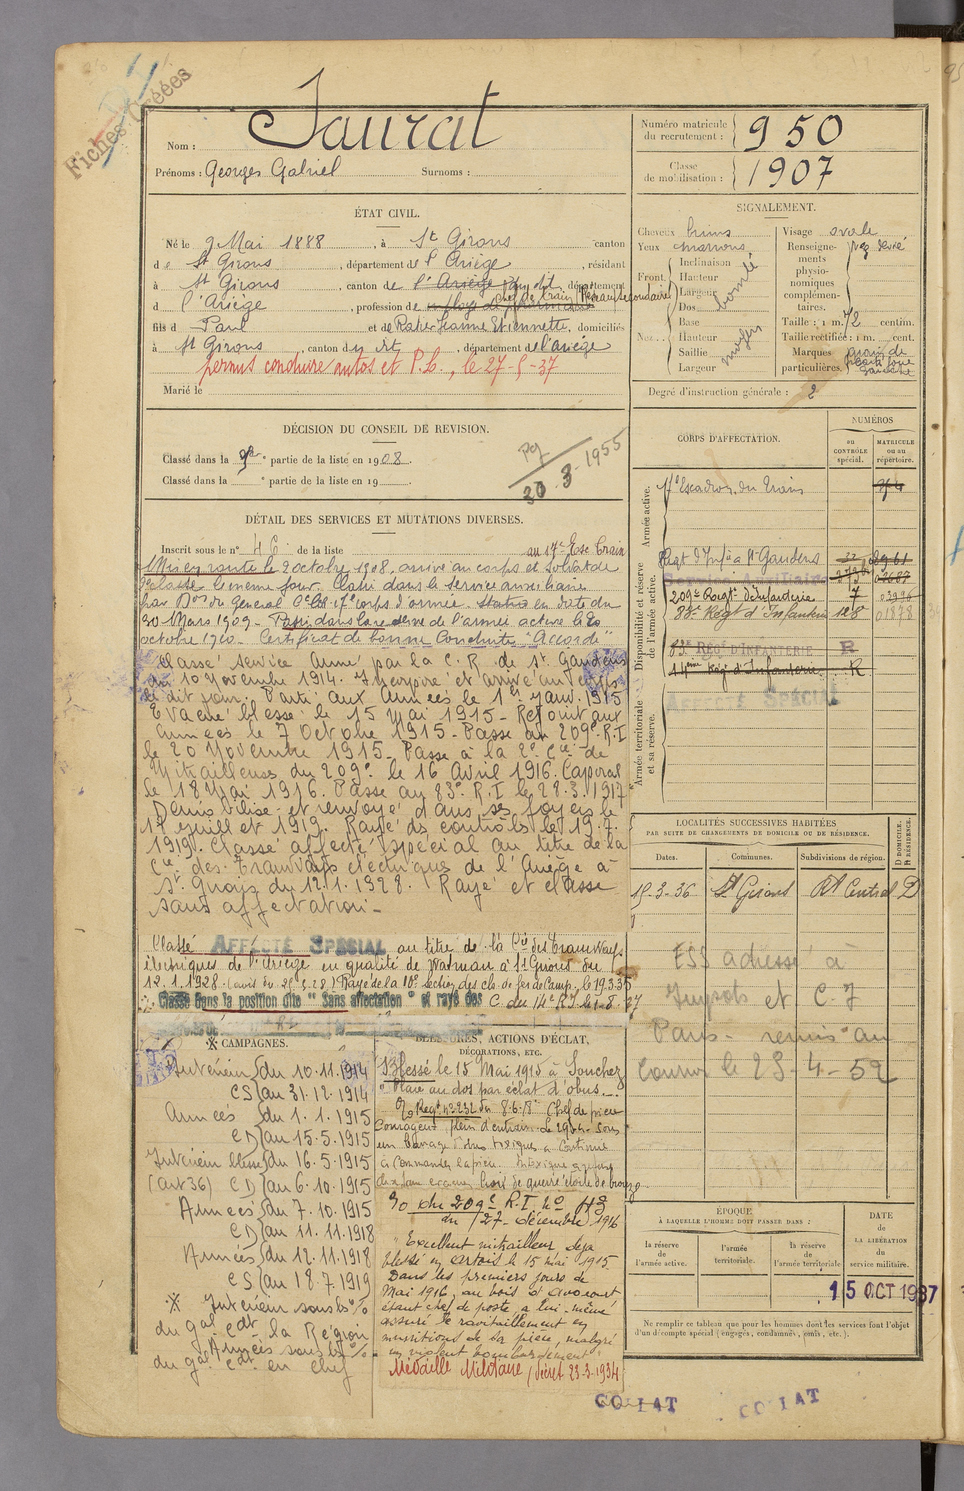 Fiches Créées
Nom : Jaurat
Prénoms : Georges Gabriel Surnoms :
Numéro matricule du recrutement : 950
Classe de mobilisation : 1907
ÉTAT CIVIL.
Né le 9 Mai 1888, à St Girons canton
de St Girons, département de l'Ariège, résidant
à St Girons, canton de l'Ariège du dit département
d l'Ariège, profession de employé de pharmacie
fils de Paul et de Jeanne Etiennette, domiciliés
à St Girons, canton du dit, département de l'Ariège
permis conduire autos et P.L., le 27-5-37
Marié le
SIGNALEMENT.
Cheveux bruns
Yeux marrons
Front
Inclinaison
Hauteur
Largeur
bombé
Nez
Dos
Base
Hauteur
Saillie
Largeur
moyen
Visage ovale
Renseignements physionomiques complémentaires.
nez dévié
Taille : 1 m. 72 centim.
Taille rectifiée : 1 m. cent.
Marques particulières.
joue gauche
Degré d'instruction générale : 2
DÉCISION DU CONSEIL DE REVISION.
Classé dans la partie de la liste en 1908.
Classé dans la ° partie de la liste en 19
30-3-1955
DÉTAIL DES SERVICES ET MUTATIONS DIVERSES.
Inscrit sous le n° 46 de la liste au 17e Esc. Train
Mis en route le 2 octobre 1908, arrivé au corps et soldat de
2e classe le même jour. Classé dans le service auxiliaire
par Don du Général Ct le 17e corps d'armée. Statué en date du
30 Mars 1909. Passé dans la réserve de l'armée active le
octobre 1910. Certificat de bonne conduite "Accordé"
Classé service armé par la C.R. de St Gaudens
du 10 novembre 1914. Incorporé et arrivé au corps
le dit jour. Parti aux Armées le 1er Janv. 1915
Evacué blessé le 15 Mai 1915 - Rejoint aux
armées le 7 Octobre 1915 - Passé au 209e R.I
le 20 Novembre 1915 - Passé à la 2e Cie de
Mitrailleuses du 209e le 16 Avril 1916. Caporal
le 18 Mai 1916. Passé au 83e R.I le 28.3.1917
Démobilisé et renvoyé dans ses foyers le
juillet 1919. Rayé des contrôles le 19.7.
1919. Classé affecté spécial au titre de la
Cie des Tramways électriques de l'Ariège à
St Girons du 12.1.1928. Rayé et classé
sans affectation -
Classé AFFECTÉ SPÉCIAL au titre de la Cie des Tramways
électriques de l'Ariège en qualité de Wattman à St Girons du
12.1.1928. Rayé de la 10e section des ch. de fer de Camp. le 19.3.35
Classé dans la position dite "Sans affectation" et rayé des C. du 14e R.I. le 1-8-37
CORPS D'AFFECTATION.
NUMÉROS
au contrôle spécial.
matricule ou au répertoire.
Armée active.
17e Escadron du Train
Disponibilité et réserve de l'armée active.
Regt d'Infie à St Gaudens
Service Auxiliaire
209e Regt d'Infanterie 7
83e Régt d'Infanterie 128 01878
83e RÉGt D'INFANTERIE R
14ème Rég. d'Infanterie R
AFFECTÉ SPÉCIAL
Armée territoriale et sa réserve.
LOCALITÉS SUCCESSIVES HABITÉES
PAR SUITE DE CHANGEMENTS DE DOMICILE OU DE RÉSIDENCE.
Dates. Communes. Subdivisions de région. D DOMICILE. R RÉSIDENCE.
15-3-36 St Girons Rt Central D
ESS adressé à
Impots et C.J
Paris - remis au
le 25-4-52
※ CAMPAGNES.
Intérieur du 10.11.1914
CS au 31.12.1914
Armées du 1.1.1915
CD au 15.5.1915
Intérieur blessé du 16.5.1915
(art 36) CD au 6.10.1915
Armées du 7.10.1915
CD au 11.11.1918
Armées du 12.11.1918
CS au 18.7.1919
※ Intérieur sous les o/o
du gal cdt la Région
Armées sous les o/o
du gal cdt en chef
BLESSURES, ACTIONS D'ÉCLAT, DÉCORATIONS, ETC.
Blessé le 15 Mai 1915 à Souchez
"Plaie au dos par éclat d'obus".
8.6.18 Chef de pièce
courageux plein d'entrain. Le sous
un barrage d'obus toxiques a continué
à commander sa pièce. Intoxiqué
Croix de guerre étoile de bronze
o/o du 209e R.I. No
du 27 décembre 1916
"Excellent mitrailleur, déjà
blessé en Artois le 15 mai 1915.
Dans les premiers jours de
Mai 1916, au bois d'Avocourt
étant chef de poste, a lui-même
assuré le ravitaillement en
munitions de sa pièce, malgré
un violent bombardement"
Médaille Militaire, (décret 23-3-1934
ÉPOQUE
À LAQUELLE L'HOMME DOIT PASSER DANS :
la réserve de l'armée active.
l'armée territoriale.
la réserve de l'armée territoriale
DATE de LA LIBÉRATION du service militaire.
15 OCT 1937
Ne remplir ce tableau que pour les hommes dont les services font l'objet
d'un décompte spécial (engagés, condamnés, omis, etc.).